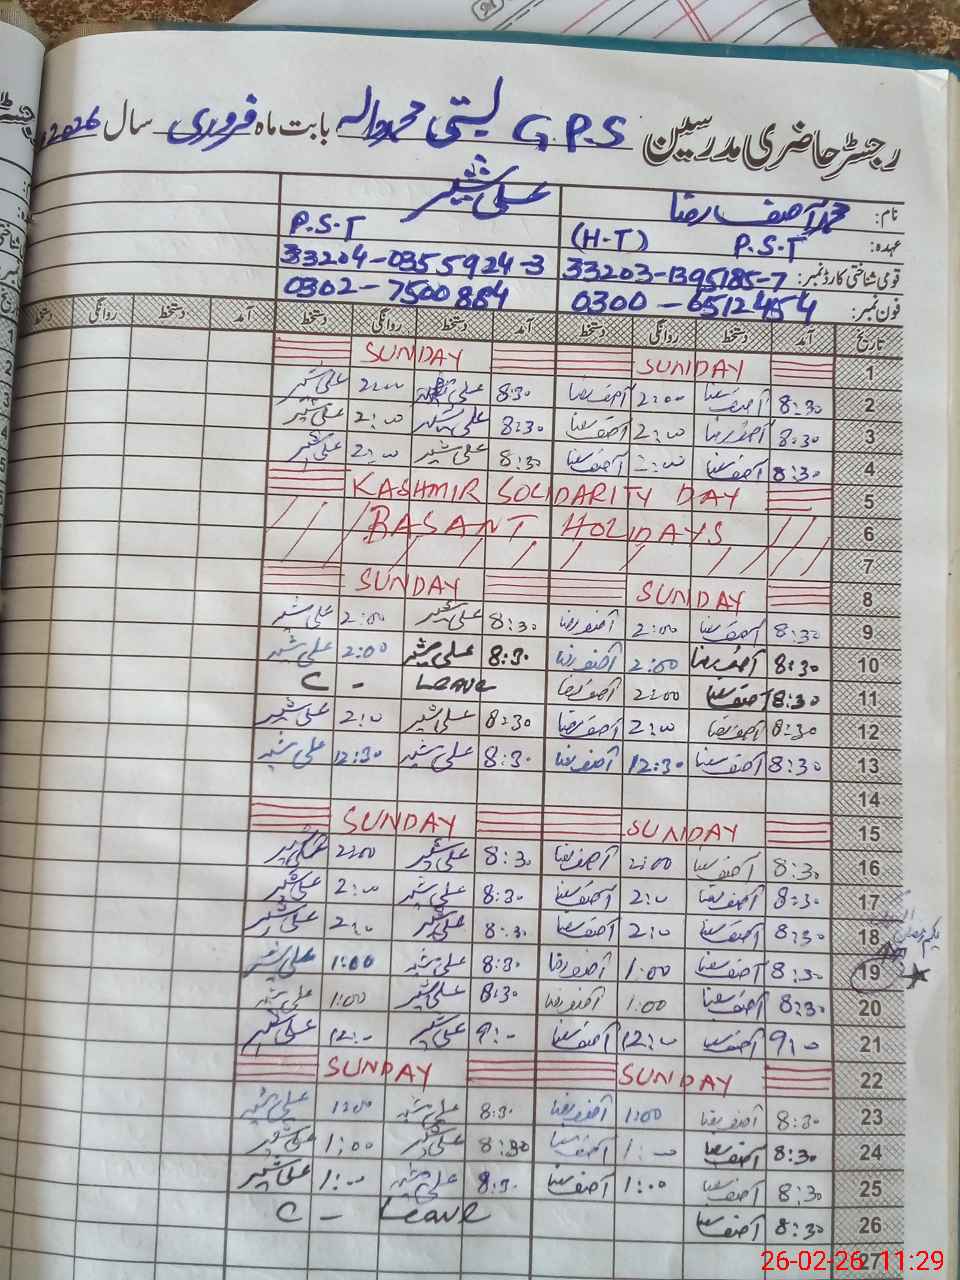 رجسٹر حاضری مدرسین G.P.S بستی محمد والہ بابت ماہ فروری سال 2026
نام: محمد آصف رضا علی شیر
عہدہ: P.S.T (H-T) P.S.T
قومی شناختی کارڈ نمبر: 33203-1395185-7 33204-0355924-3
فون نمبر: 0300-6512454 0302-7500884
تاریخ آمد دستخط روانگی دستخط آمد دستخط روانگی دستخط آمد دستخط روانگی دستخط
1 SUNDAY SUNDAY
2 8:30 آصف رضا 2:00 آصف رضا 8:30 علی شیر 2:00 علی شیر
3 8:30 آصف رضا 2:00 آصف رضا 8:30 علی شیر 2:00 علی شیر
4 8:30 آصف رضا 2:00 آصف رضا 8:30 علی شیر 2:00 علی شیر
5 KASHMIR SOLIDARITY DAY
6 BASANT HOLIDAYS
7
8 SUNDAY SUNDAY
9 8:30 آصف رضا 2:00 آصف رضا 8:30 علی شیر 2:00 علی شیر
10 8:30 آصف رضا 2:00 آصف رضا 8:30 علی شیر 2:00 علی شیر
11 8:30 آصف رضا 2:00 آصف رضا C - LEAVE
12 8:30 آصف رضا 2:00 آصف رضا 8:30 علی شیر 2:00 علی شیر
13 8:30 آصف رضا 12:30 آصف رضا 8:30 علی شیر 12:30 علی شیر
14
15 SUNDAY SUNDAY
16 8:30 آصف رضا 2:00 آصف رضا 8:30 علی شیر 2:00 علی شیر
17 8:30 آصف رضا 2:00 آصف رضا 8:30 علی شیر 2:00 علی شیر
18 8:30 آصف رضا 2:00 آصف رضا 8:30 علی شیر 2:00 علی شیر
یکم رمضان
19 8:30 آصف رضا 1:00 آصف رضا 8:30 علی شیر 1:00 علی شیر
20 8:30 آصف رضا 1:00 آصف رضا 8:30 علی شیر 1:00 علی شیر
21 9:00 آصف رضا 12:00 آصف رضا 9:00 علی شیر 12:00 علی شیر
22 SUNDAY SUNDAY
23 8:30 آصف رضا 1:00 آصف رضا 8:30 علی شیر 1:00 علی شیر
24 8:30 آصف رضا 1:00 آصف رضا 8:30 علی شیر 1:00 علی شیر
25 8:30 آصف رضا 1:00 آصف رضا 8:30 علی شیر 1:00 علی شیر
26 8:30 آصف رضا C - Leave
27
26-02-26 11:29